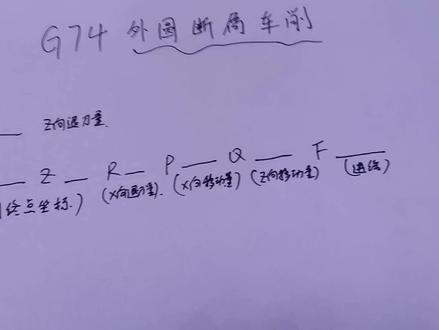 G74 外圆断屑车削
___ Z向退刀量.
__ Z __ R __ P __ Q __ F __
终点坐标.) (X向退刀量). (X向移动量) (Z向移动量) (进给)